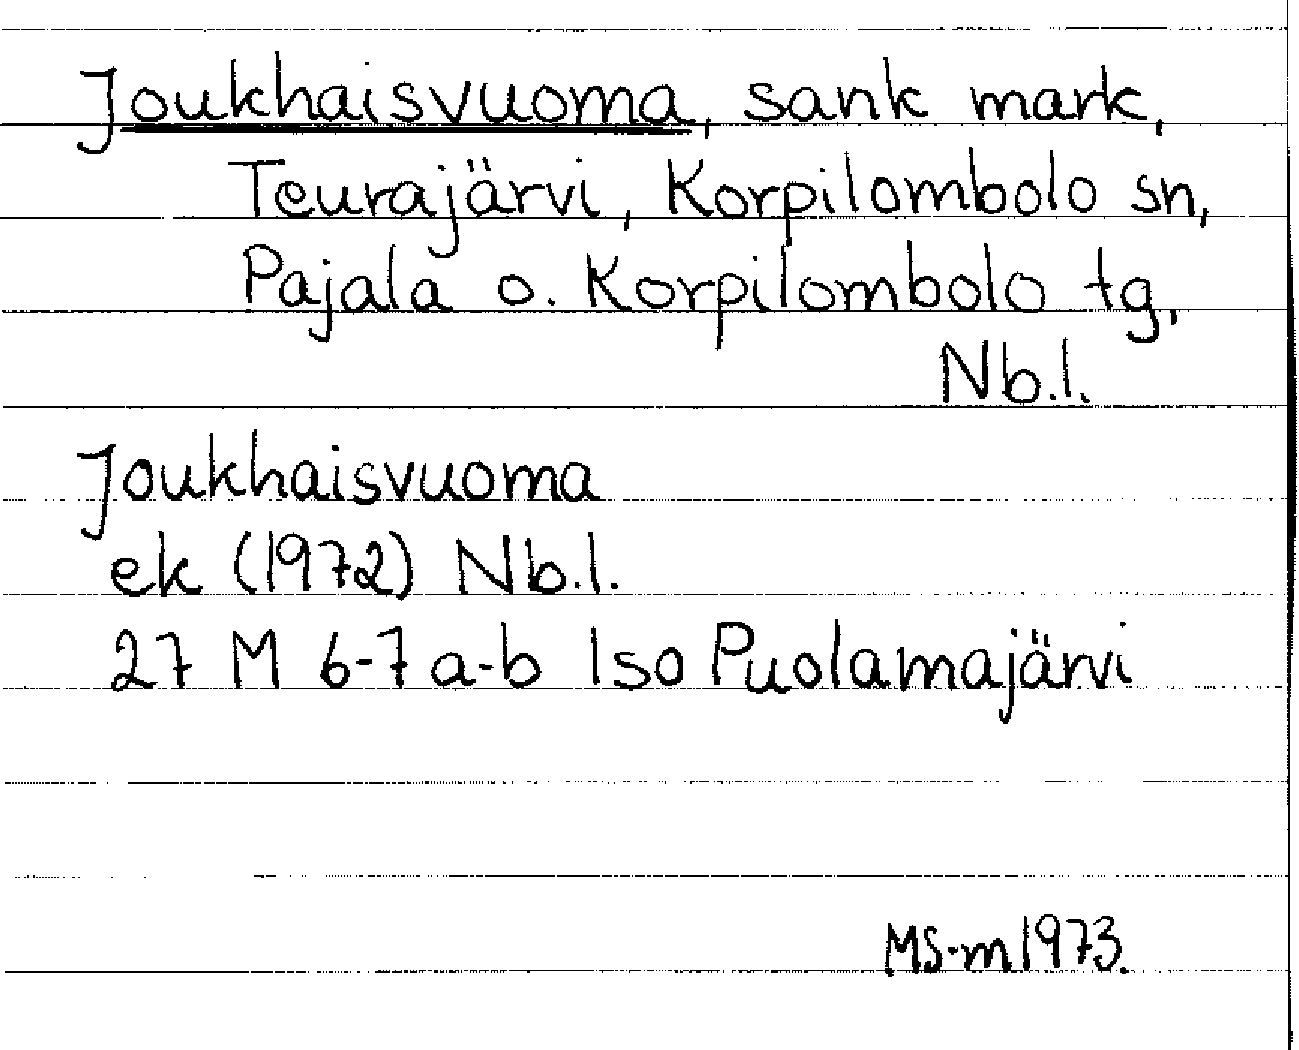 Joukhaisvuoma, sank mark,
Teurajärvi, Korpilombolo sn,
Pajala o. Korpilombolo tg,
Nb.l.
Joukhaisvuoma
ek (1972) Nb.l.
27 M 6-7 a-b Iso Puolamajärvi
MS-m 1973.